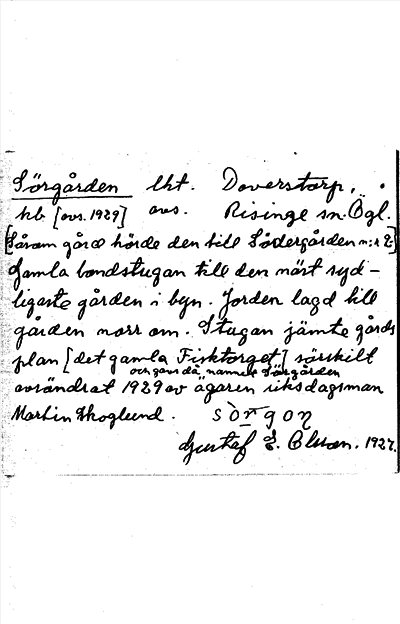 Sörgården lht. Doverstorp,
hb [avs. 1929] avs. Risinge sn. Ögl.
[Såsom gård hörde den till Södergården n:r 2]
Gamla bondstugan till den näst syd-
ligaste gården i byn. Jorden lagd till
gården norr om. Stugan jämte gårds
plan [det gamla Fisktorget] särskilt
och gavs då namnet Sörgården
avsöndrat 1929 av ägaren riksdagsman
Martin Skoglund. sörgoŋ
Gustaf E. Olsson. 1927.